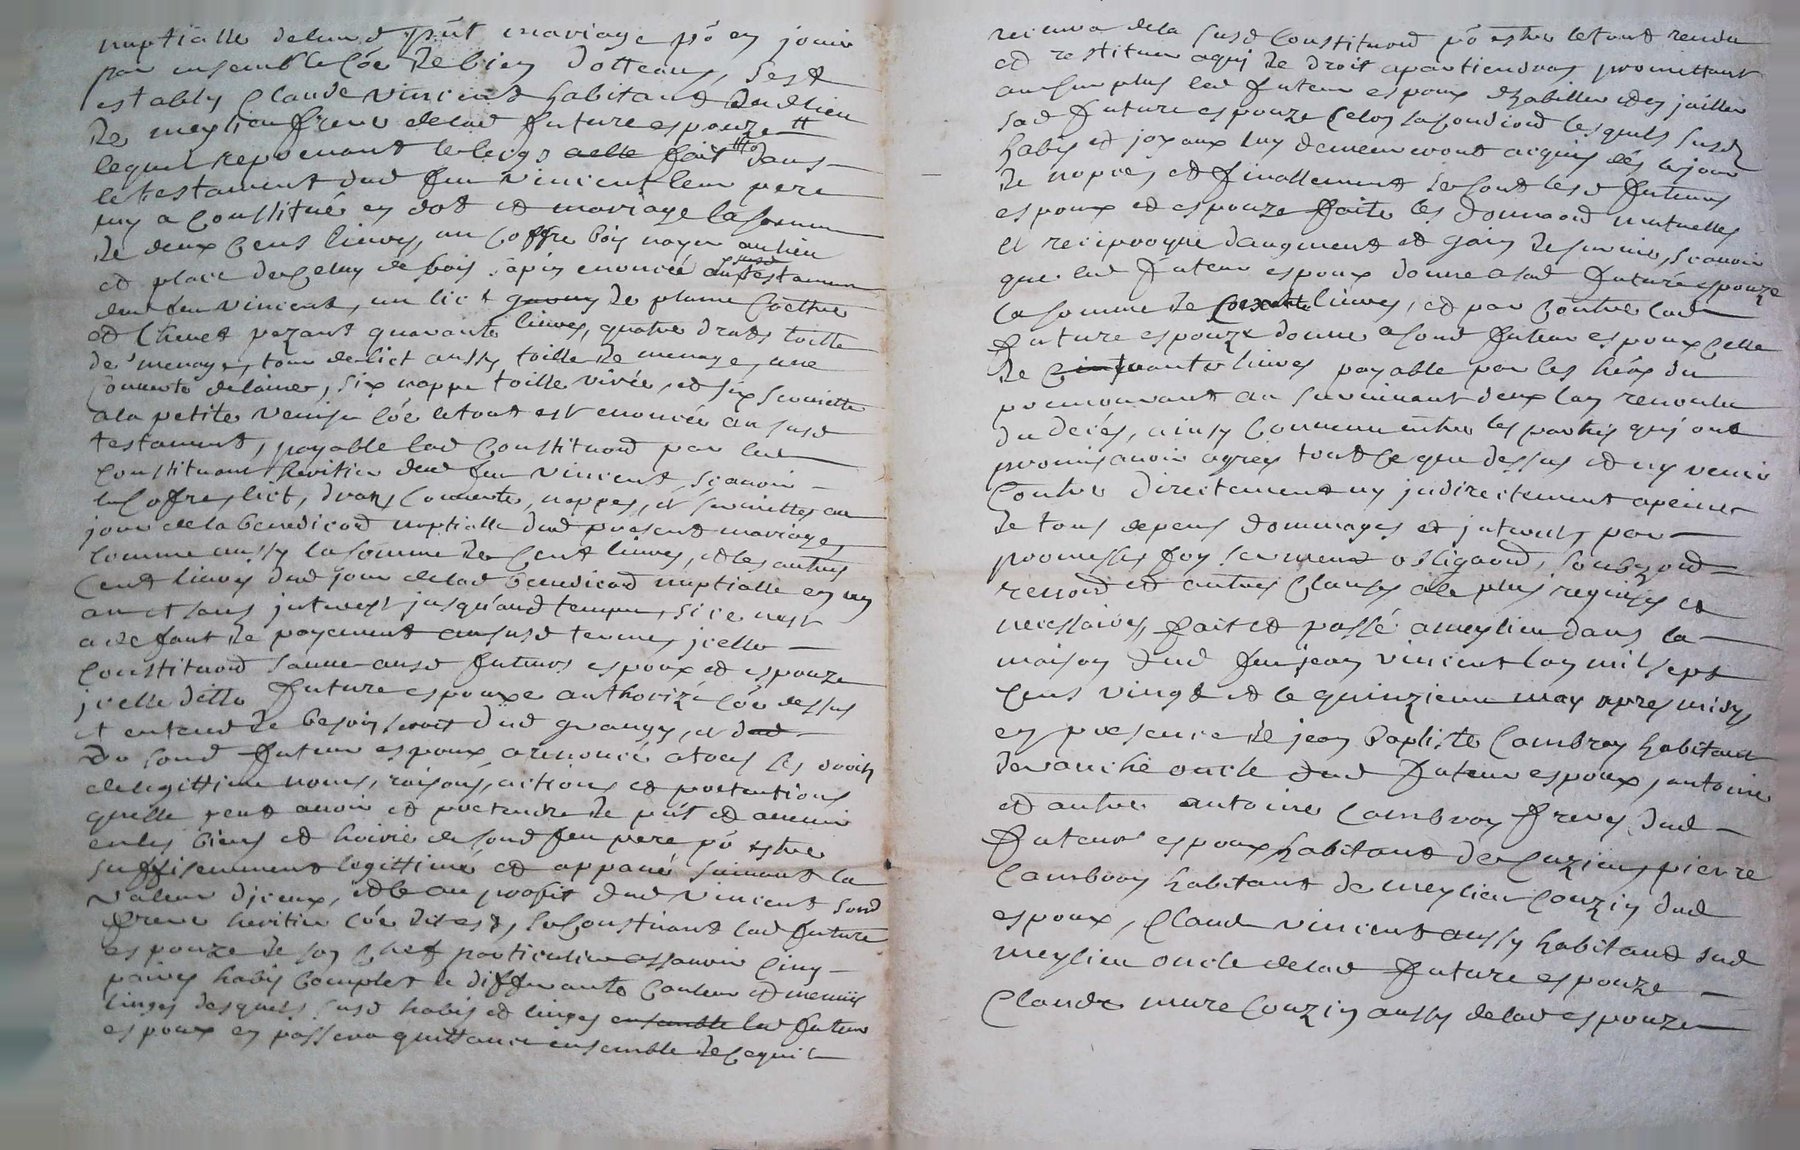 nuptialle delaud pñt mariage pō en jouir
par ensemble côe de bien dotteaux, s'est
estably Claude vincent habitant dud lieu
de meylieu frere delad future espouze #
lequel reprenant le legs aelle fait dans
le testament dud feu vincent leur pere
luy a constitué en dot et mariage la somme
de deux cens livres, un coffre bois noyer au lieu
et place de celuy de bois sapin enoncée au susd testament
dud feu vincent, un lict de plume coettre
et Chevet pezant quarante livres, quatre draps toille
de menage, tour de lict aussy toille de menage, une
couverte de laine, six nappe toille , et six serviette
ala petite venise côe le tout est enoncée au susd
testament, payable lad constituōn par led
constituant heritier dud feu vincent, scavoir
le coffre, lict, draps, couverte, nappes, et serviettes au
jour de la benediction nuptialle dud present mariage
comme aussy la somme de Cent livres, et les autres
Cent livres dud jour delad benediction nuptialle en un
an et sans interest jusqu'aud temps, si ce nest
a deffaut de payement aususd termes, jcelle
constituōn sauve ausd futurs espoux et espouze
jcelle ditte future espouze authorizé côe dessus
et entend de besoin seroit dud grangy, et dud
du sond futeur espoux, a renoncé atous les droits
de legittime noms, raisons, actions et pretentions
quelle peut avoir et pretendre de pñt et avenir
en les biens et hoirie de sond feu pere pō estre
suffisemment legittimé et appané suivant la
valeur djceux, et le au proffit dud vincent sond
frere heritier côe dit est, se constituant lad future
espouze de son chef particulier assavoir cinq
paires habis complet de differante couleur et menus
linges desquels susd habis et linges ensemble led futeur
espoux en passera quittance ensemble de ce quil
recevra de la susd constituōn pō estre le tout rendu
et restituer aqui de droit apartiendras promettant
au surplus led futeur espoux dhabiller et enjoailler
sad future espouze selon sa condiōn lesquels susd
habis et joyaux luy demeureront acquis dés le jour
de nopces, et finallement se sont lesd futurs
espoux et espouze faite les donnaōn mutuelles
et reciproque daugment et gain de survie, scavoir
que led futeur espoux donne a sad future espouze
la somme de livres, et par contre lad
future espouze donne a sond futeur espoux celle
de Cinquante livres payable par les heōs du
premourant au survivant deux lan revolu
du decés, ainsy convenu entre les parties qui ont
promis avoir agreés tout ce que dessus et ny venir
contre directement ny jndirectement apeine
de tous depens dommages et jnterests, par
promesses foy serment obligaōn, soubzōn
renonōn et autres clauses ale plus requises et
necessaires, fait et passé a meylieu dans la
maison dud feu jean vincent lan mil sept
cens vingt et le quinzieme may apres midy
en presence de jean Baptiste Cambray habitant
oncle dud futeur espoux, antoine
et autre antoine Cambray freres dud
futeur espoux habitant de Cuzieu, pierre
Cambray habitant de meylieu couzin dud
espoux, Claude vincent aussy habitant dud
meylieu oncle delad future espouze
Claude mure couzin aussy delad espouze